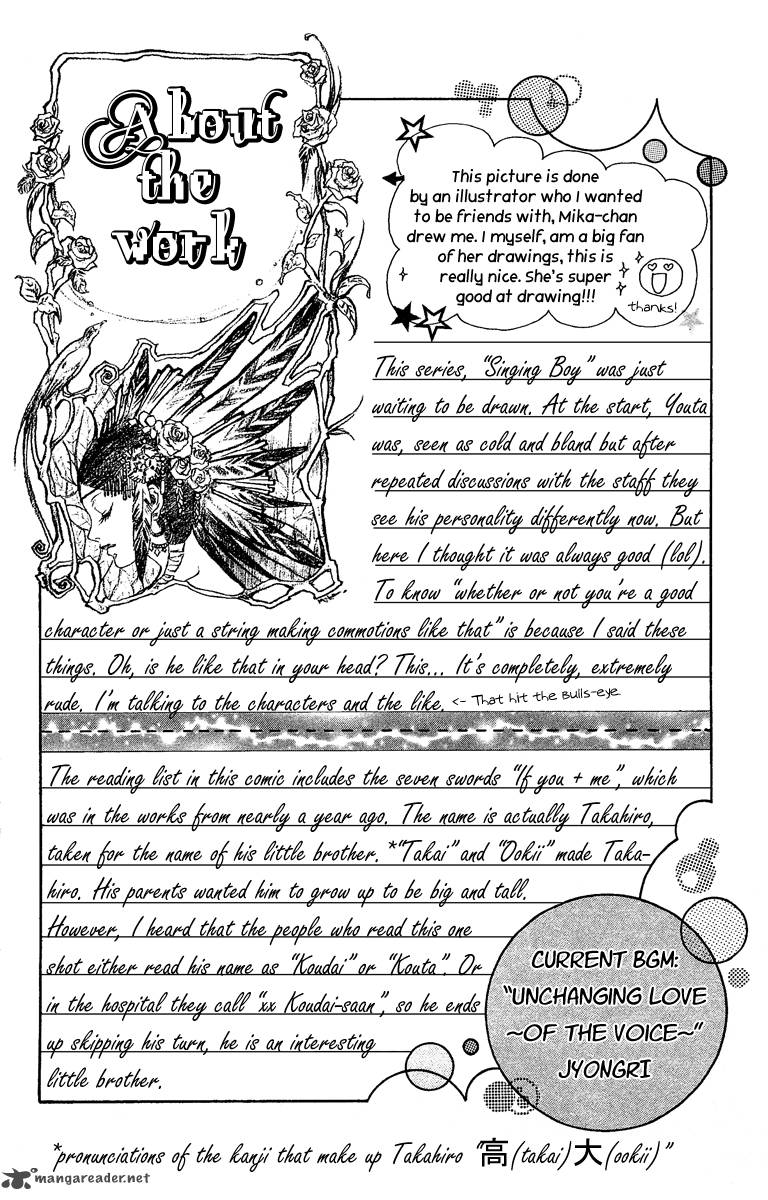 About
the
work
This picture is done
by an illustrator who I wanted
to be friends with, Mika-chan
drew me. I myself, am a big fan
of her drawings, this is
really nice. She's super
good at drawing!!!
thanks!
This series, "Singing Boy" was just
waiting to be drawn. At the start, Youta
was, seen as cold and bland but after
repeated discussions with the staff they
see his personality differently now. But
here I thought it was always good (lol).
To know "whether or not you're a good
character or just a string making commotions like that" is because I said these
things. Oh, is he like that in your head? This... It's completely, extremely
rude. I'm talking to the characters and the like. <- That hit the Bulls-eye
The reading list in this comic includes the seven swords "If you + me", which
was in the works from nearly a year ago. The name is actually Takahiro,
taken for the name of his little brother. *"Takai" and "Ookii" made Taka-
hiro. His parents wanted him to grow up to be big and tall.
However, I heard that the people who read this one
shot either read his name as "Koudai" or "Kouta". Or
in the hospital they call "xx Koudai-saan", so he ends
up skipping his turn, he is an interesting
little brother.
CURRENT BGM:
"UNCHANGING LOVE
~OF THE VOICE~"
JYONGRI
*pronunciations of the kanji that make up Takahiro "高(takai)大(ookii)"
mangareader.net